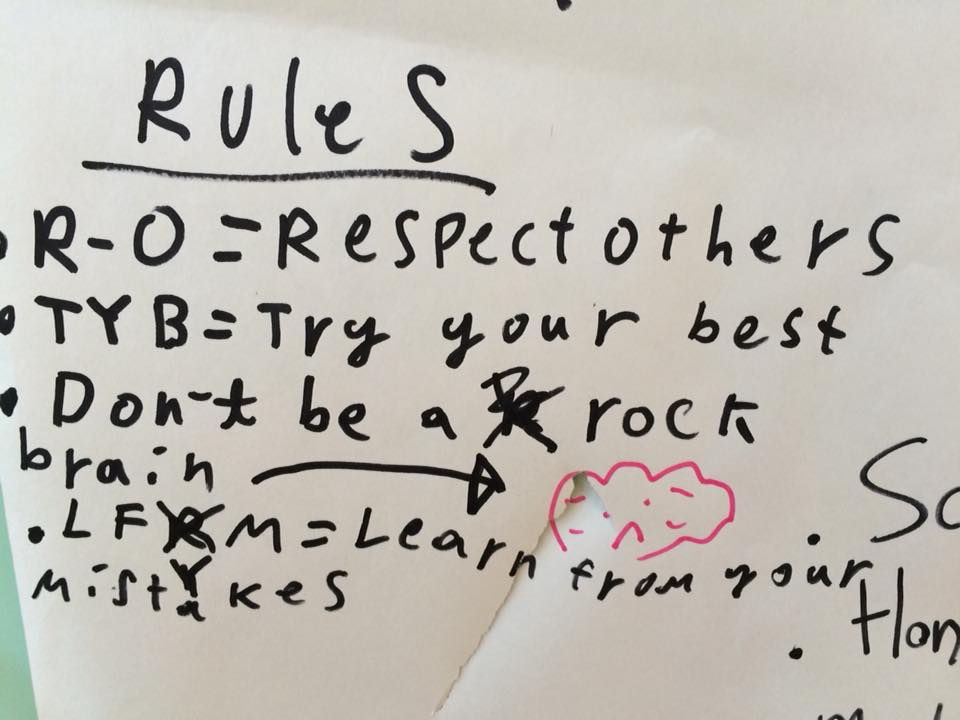 Rules
• R-O = Respect others
• TYB = Try your best
• Don't be a rock
brain
• LFM = Learn from your
mistakes